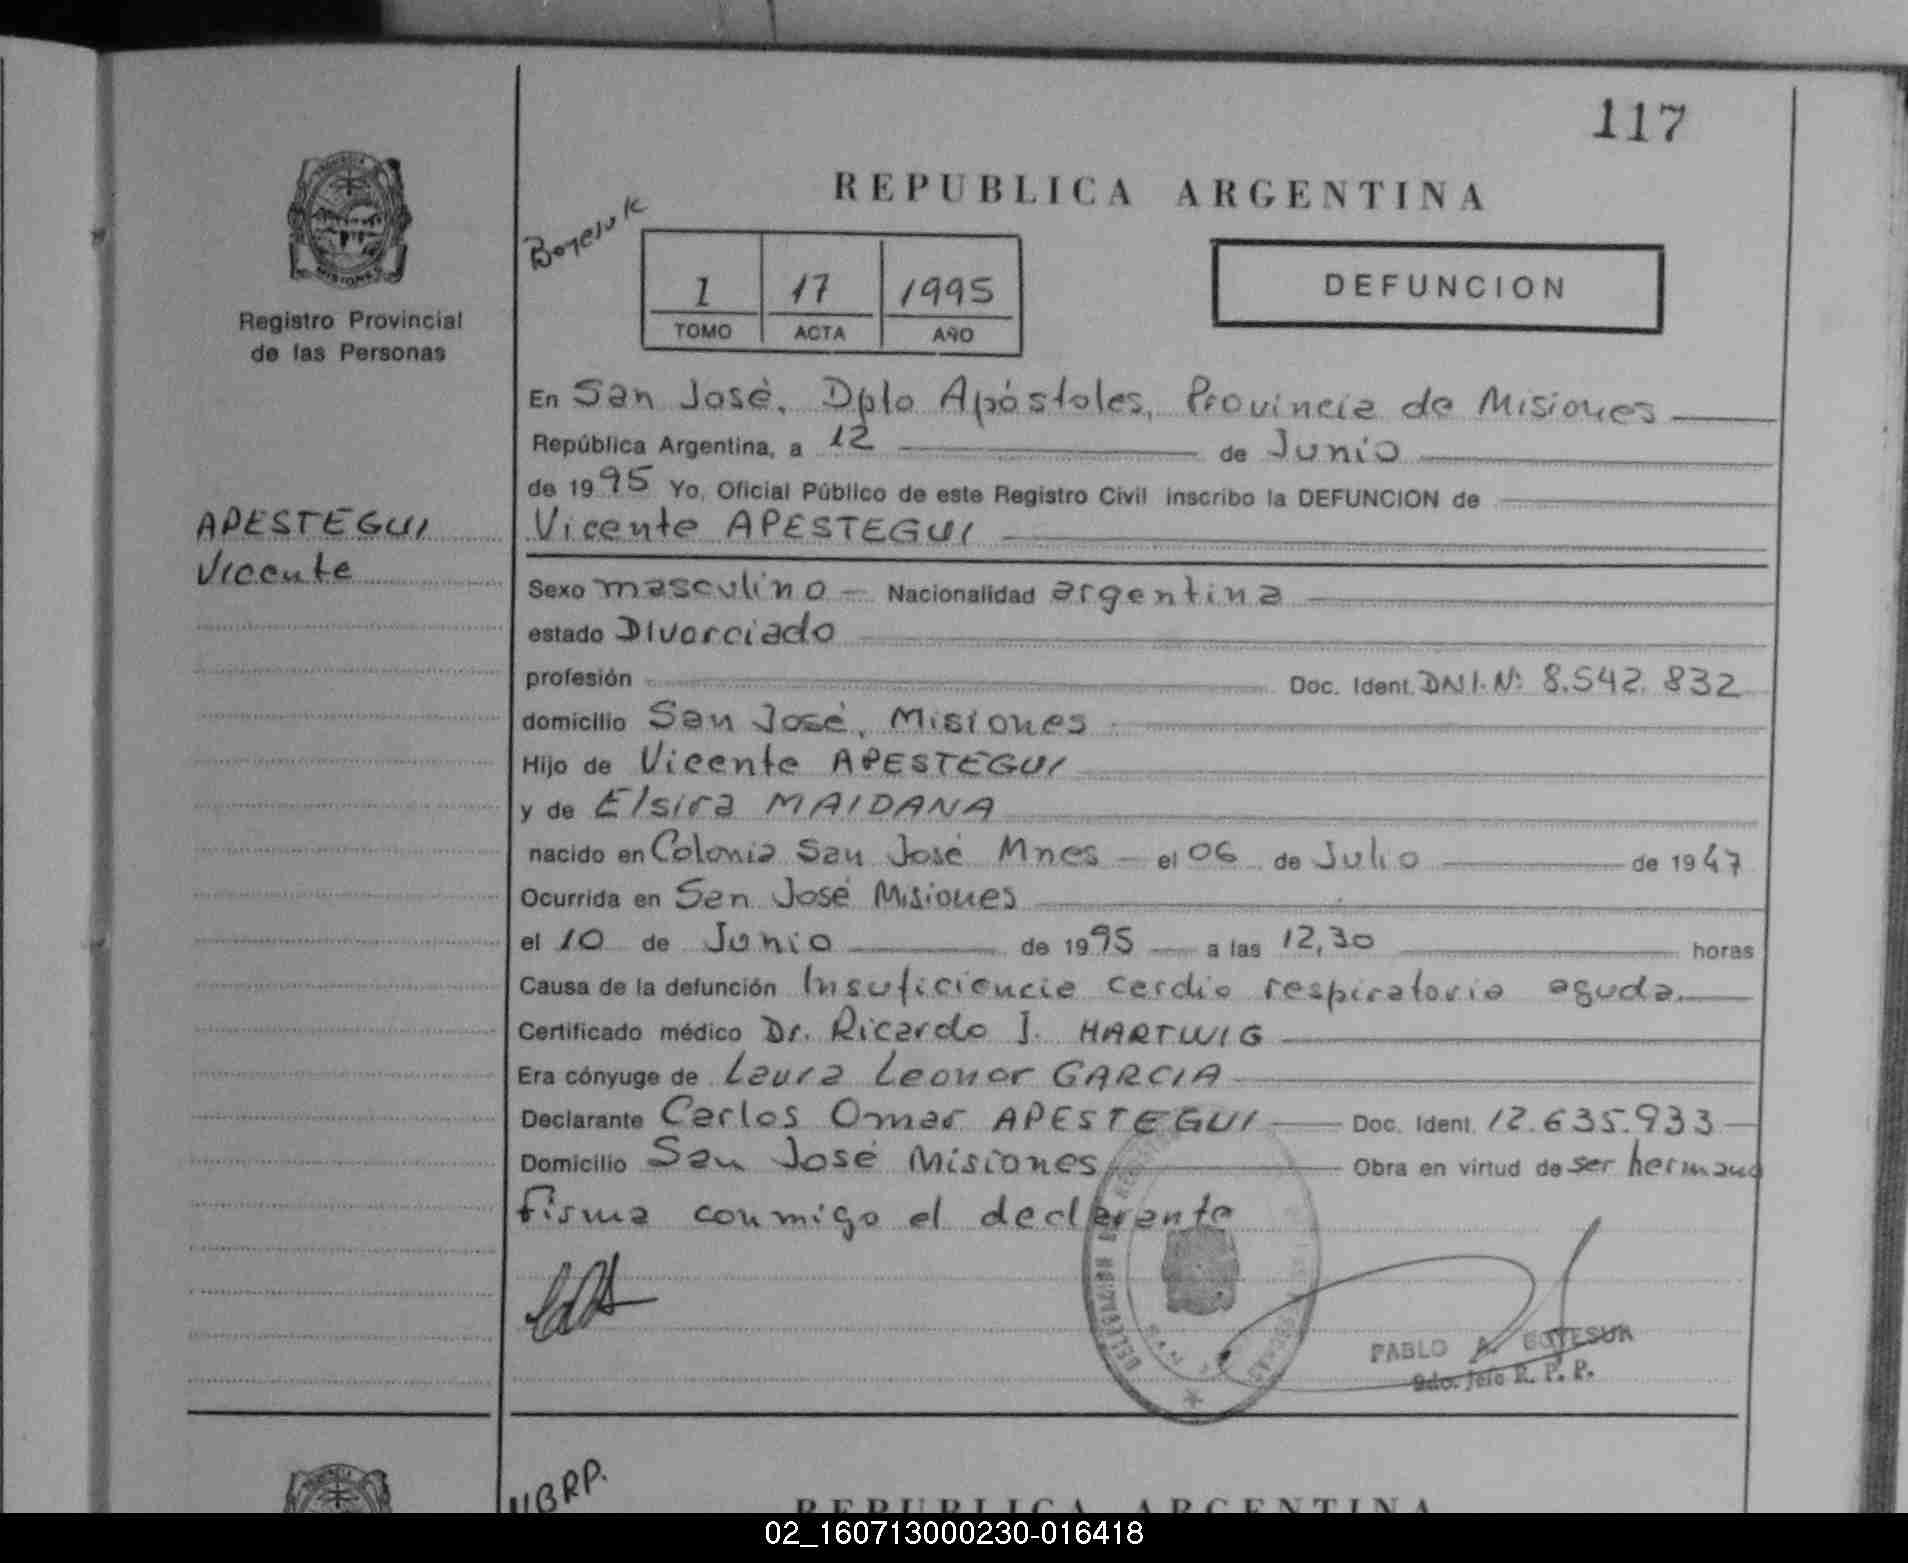 117
REPUBLICA ARGENTINA
Registro Provincial
de las Personas
1 17 1995
TOMO ACTA AÑO
DEFUNCION
En San José, Dpto Apóstoles, Provincia de Misiones
República Argentina, a 12 de Junio
de 1995 Yo, Oficial Público de este Registro Civil inscribo la DEFUNCION de
APESTEGUI
Vicente
Vicente APESTEGUI
Sexo masculino Nacionalidad argentina
estado Divorciado
profesión Doc. Ident. DNI. Nº 8.542.832
domicilio San José, Misiones
Hijo de Vicente APESTEGUI
y de Elsira MAIDANA
nacido en Colonia San José Mnes el 06 de Julio de 1947
Ocurrida en San José Misiones
el 10 de Junio de 1995 a las 12,30 horas
Causa de la defunción Insuficiencia cardio respiratoria aguda.
Certificado médico Dr. Ricardo J. HARTWIG
Era cónyuge de Laura Leonor GARCIA
Declarante Carlos Omar APESTEGUI Doc. Ident. 12.635.933
Domicilio San José Misiones Obra en virtud de ser hermano
firma conmigo el declarante
PABLO A.
R. P. P.
REPUBLICA ARGENTINA
02_160713000230-016418